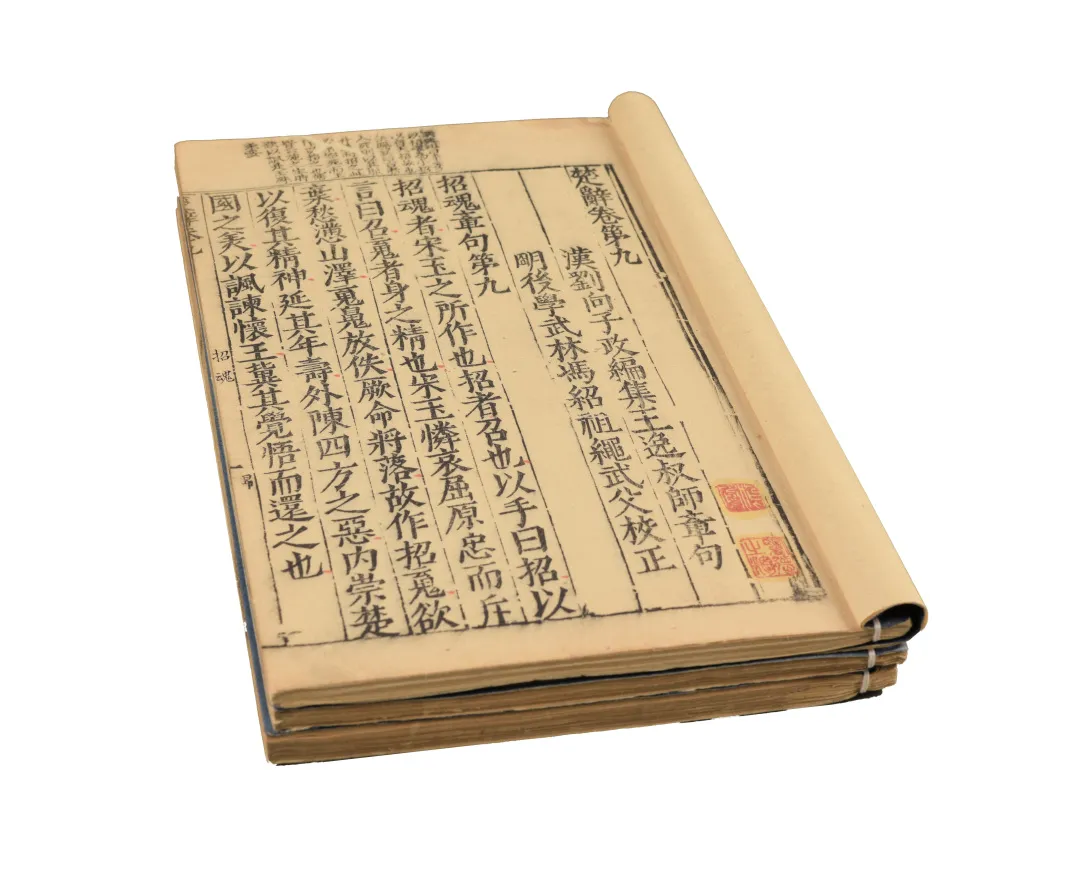 楚辭卷第九
漢劉向子政編集王逸叔師章句
明後學武林馮紹祖繩武父校正
招魂章句第九
招魂者宋玉之所作也招者召也以手曰招以
言曰召䰟者身之精也宋玉憐哀屈原忠而斥
棄愁懣山澤䰟魄放佚厥命將落故作招䰟欲
以復其精神延其年壽外陳四方之惡內崇楚
國之美以諷諫懷王冀其覺悟而還之也
招魂